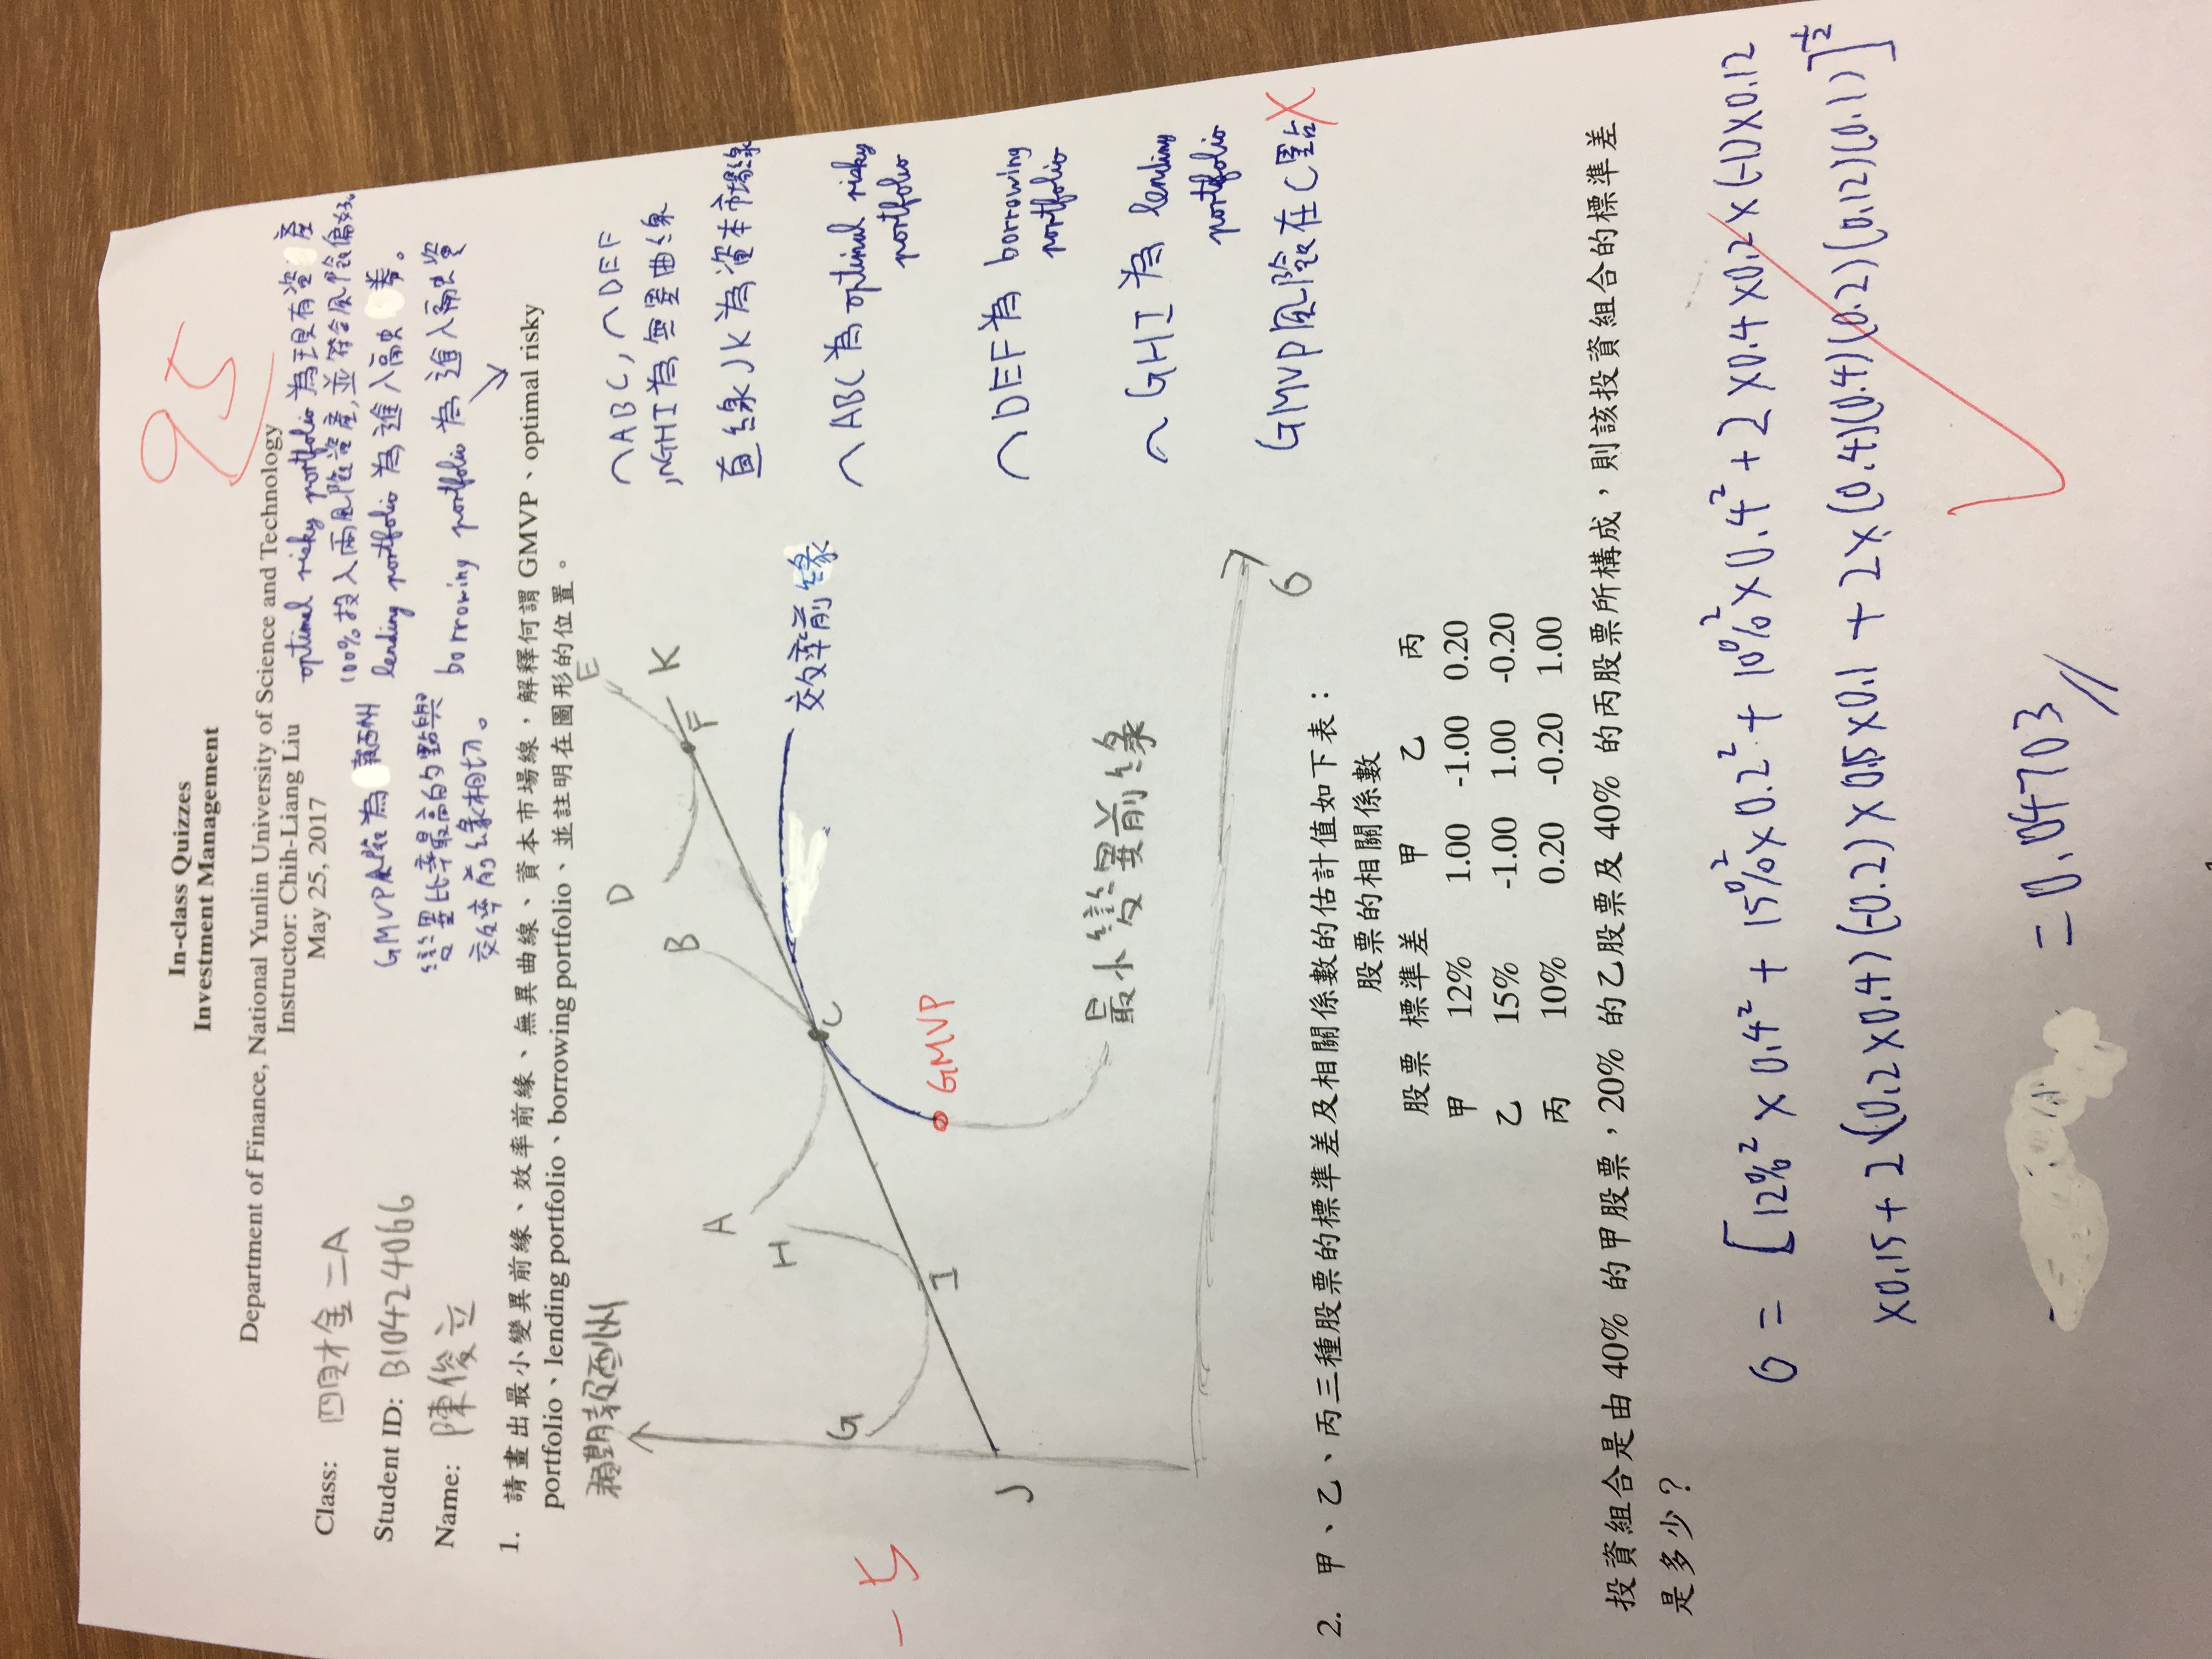 In-class Quizzes
Investment Management
95
Department of Finance, National Yunlin University of Science and Technology
Instructor: Chih-Liang Liu
May 25, 2017
Class: 四財金二A
Student ID: B10424066
Name: 陳俊立
GMVP風險為 報酬
變異比率最高的點與
效率前緣相切。
optimal risky portfolio為現有資產
100%投入兩風險資產,並符合風險偏好。
lending portfolio 為進入融券。
borrowing portfolio 為進入融資
1. 請畫出最小變異前緣、效率前緣、無異曲線、資本市場線,解釋何謂 GMVP、optimal risky
portfolio、lending portfolio、borrowing portfolio、並註明在圖形的位置。
預期報酬
D
E
K
F
B
A
H
C
G
I
J
-5
效率前緣
GMVP
最小變異前緣
σ
⌒ABC, ⌒DEF
,⌒GHI為無異曲線
直線JK為資本市場線
⌒ABC為optimal risky
portfolio
⌒DEF為 borrowing
portfolio
⌒GHI為 lending
portfolio
GMVP風險在C點X
2. 甲、乙、丙三種股票的標準差及相關係數的估計值如下表:
股票的相關係數
股票 標準差 甲 乙 丙
甲 12% 1.00 -1.00 0.20
乙 15% -1.00 1.00 -0.20
丙 10% 0.20 -0.20 1.00
投資組合是由 40% 的甲股票,20% 的乙股票及 40% 的丙股票所構成,則該投資組合的標準差
是多少?
σ = [12%² × 0.4² + 15%² × 0.2² + 10%² × 0.4² + 2 × 0.4 × 0.2 × (-1) × 0.12
× 0.15 + 2 × (0.2 × 0.4) (-0.2) × 0.15 × 0.1 + 2 × (0.4)(0.4)(0.2)(0.12)(0.1)]^½
= 0.04703 //